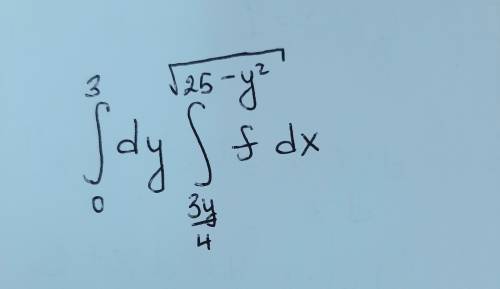 \int_{0}^{3} dy \int_{\frac{3y}{4}}^{\sqrt{25-y^2}} f dx